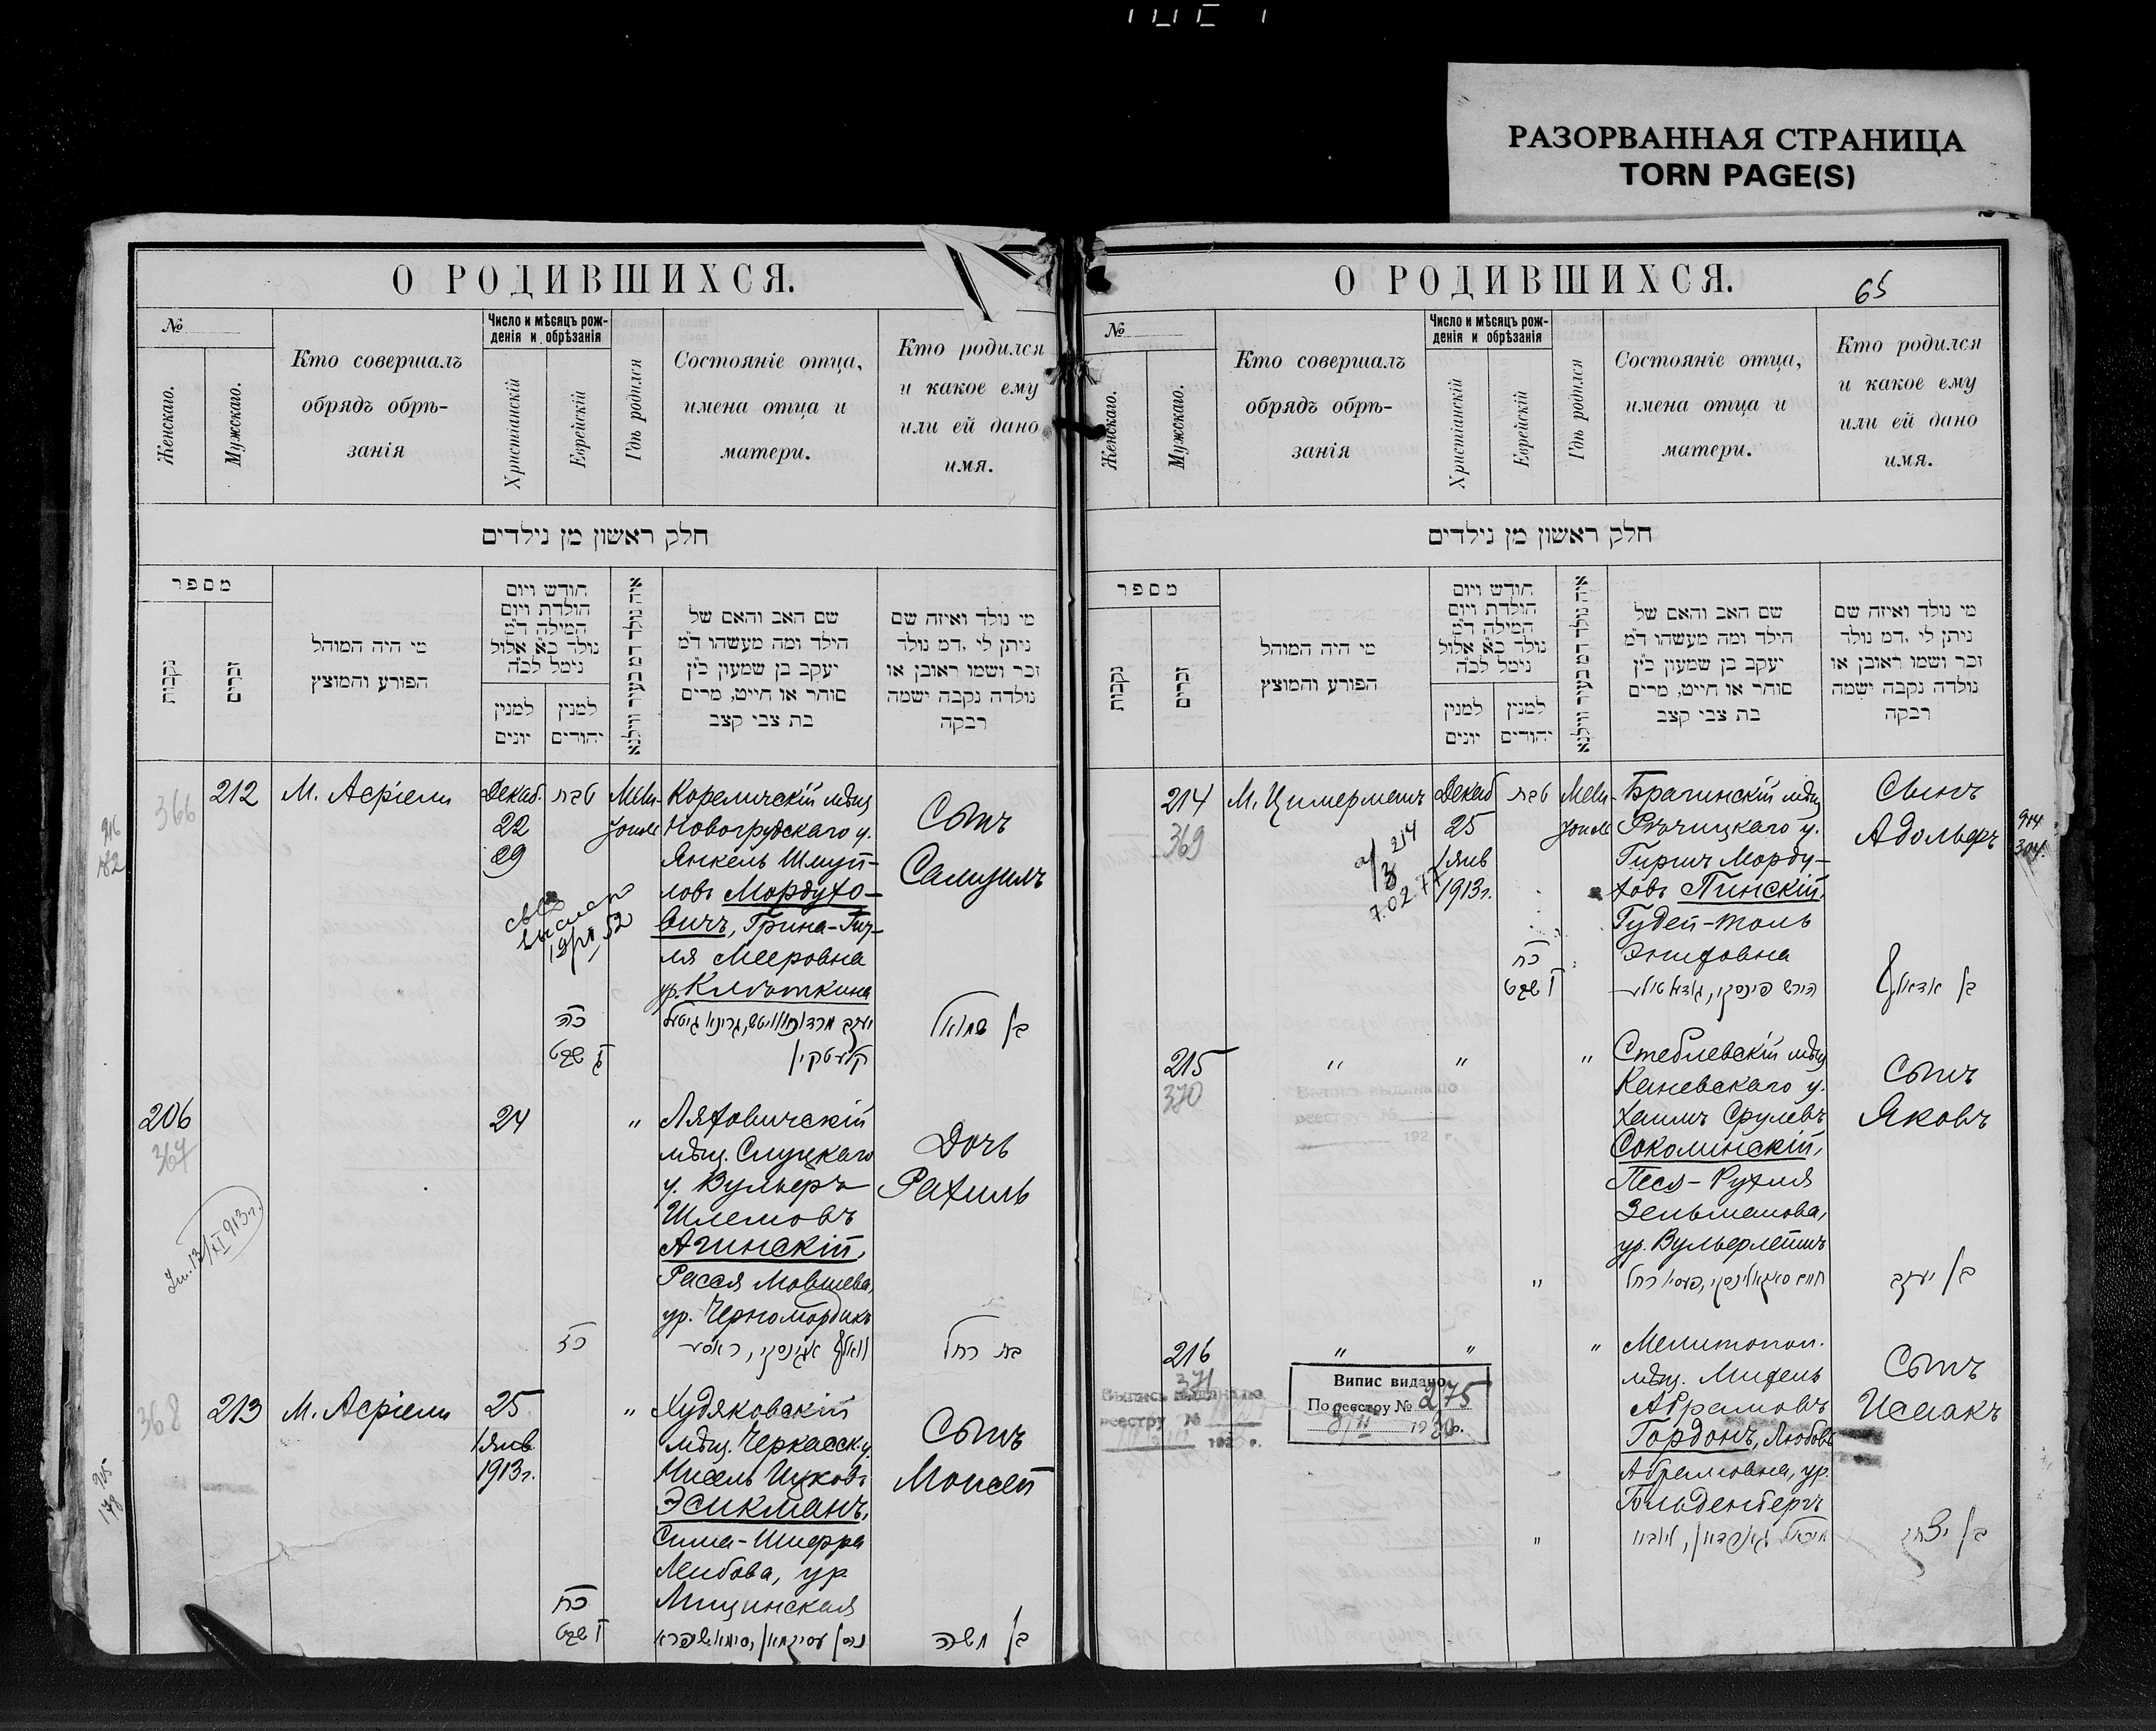 РАЗОРВАННАЯ СТРАНИЦА
TORN PAGE(S)
О РОДИВШИХСЯ.
№
Женскаго.
Мужскаго.
Кто совершалъ
обрядъ обрѣ-
занія
Число и мѣсяцъ рож-
денія и обрѣзанія
Христіанскій
Еврейскій
Гдѣ родился
Состояніе отца,
имена отца и
матери.
Кто родился
и какое ему
или ей дано
имя.
חלק ראשון מן נילדים
מספר
נקבות
זכרים
מי היה המוהל
הפורע והמוצץ
חודש ויום
הולדת ויום
המילה ד״מ
נולד כא אלול
נימל לכ״ה
למנין
יונים
למנין
יהודים
שם האב והאם של
הילד ומה מעשהו ד״מ
יעקב בן שמעון כ״ץ
סוחר או חייט, מרים
בת צבי קצב
מי נולד ואיזה שם
ניתן לי, דמ נולד
זכר ושמו ראובן או
נולדה נקבה ישמה
רבקה
366
212
М. Асріели
Декаб.
22
29
טבת
Мели-
тополь
Кореличскій мѣщ
Новогрудскаго у.
Янкель Шмуй-
ловъ Мордухо-
вичъ, Грина-Гит-
ля Мееровна
ур. Клѣткина
Сынъ
Самуилъ
כה
ג שבט
בן שמואל
206
367
24
"
Ляховичскій
мѣщ. Слуцкаго
у. Вульфъ
Шлемовъ
Агинскій,
Рася Мовшева,
ур. Черномордикъ
Дочь
Рахиль
בת רחל
368
213
М. Асріели
25
1 Янв
1913г.
"
Худяковскій
мѣщ. Черкасск. у
Нисель Ицковъ
Эсикманъ,
Сима-Шифра
Лейбова, ур
Мицинская
Сынъ
Моисей
כח
ו שבט
בן משה
О РОДИВШИХСЯ.
65
№
Женскаго.
Мужскаго.
Кто совершалъ
обрядъ обрѣ-
занія
Число и мѣсяцъ рож-
денія и обрѣзанія
Христіанскій
Еврейскій
Гдѣ родился
Состояніе отца,
имена отца и
матери.
Кто родился
и какое ему
или ей дано
имя.
חלק ראשון מן נילדים
מספר
נקבות
זכרים
מי היה המוהל
הפורע והמוצץ
חודש ויום
הולדת ויום
המילה ד״מ
נולד כא אלול
נימל לכ״ה
למנין
יונים
למנין
יהודים
שם האב והאם של
הילד ומה מעשהו ד״מ
יעקב בן שמעון כ״ץ
סוחר או חייט, מרים
בת צבי קצב
מי נולד ואיזה שם
ניתן לי, דמ נולד
זכר ושמו ראובן או
נולדה נקבה ישמה
רבקה
214
369
М. Цимерманъ
Декаб
25
1 Янв
1913г.
טבת
Мели-
тополь
Брагинскій мѣщ
Рѣчицкаго у.
Гиршъ Морду-
ховъ Пинскій.
Гудей-Толь
Сынъ
Адольфъ
כח
ו שבט
בן אדאלף
215
370
"
"
"
Стеблевскій мѣщ
Каневскаго у.
Хаимъ Срулевъ
Соколинскій,
Песя-Рухля
Зельманова,
Сынъ
Яковъ
"
בן יעקב
216
371
"
"
"
Мелитопол.
мѣщ. Михель
Абрамовъ
Гордонъ, Любовь
Абрамовна, ур.
Гольденбергъ
Сынъ
Исаакъ
"
בן יצחק
Випис видано
По реєстру № 275